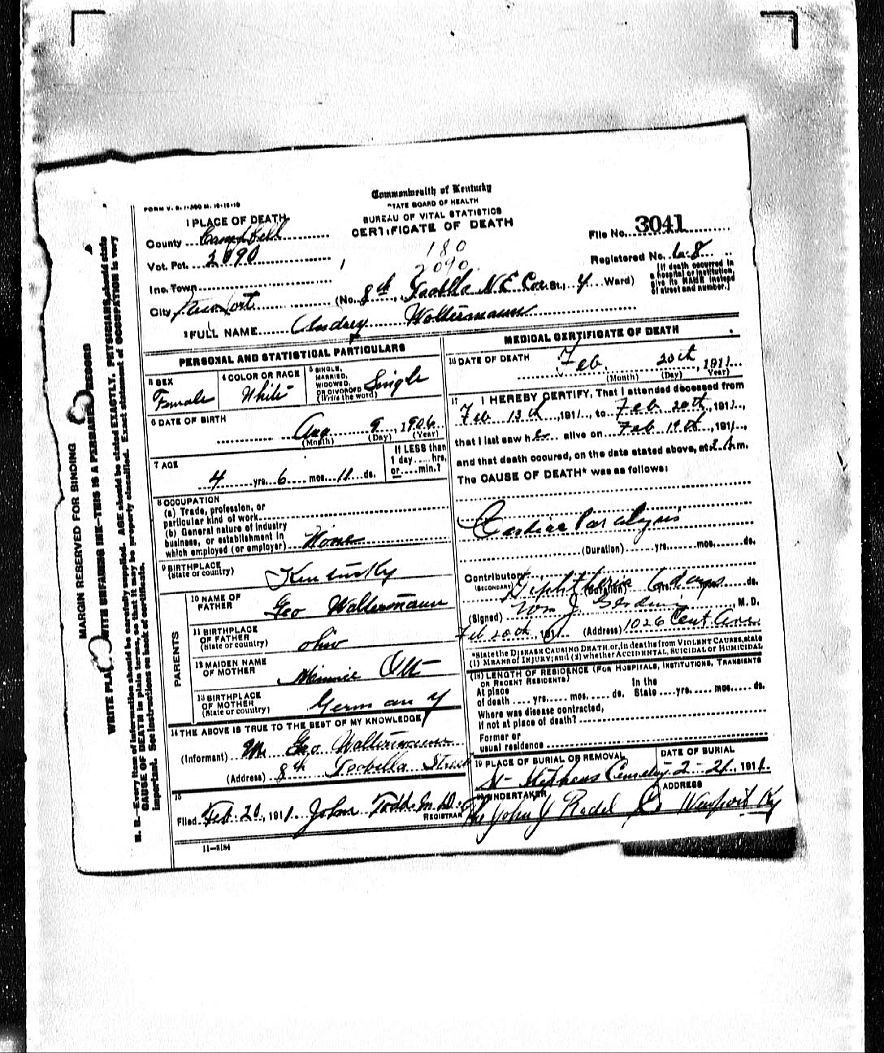 Commonwealth of Kentucky
STATE BOARD OF HEALTH
BUREAU OF VITAL STATISTICS
CERTIFICATE OF DEATH
1 PLACE OF DEATH
County Campbell
Vot. Pct. 2090
180
2090
Inc. Town
City Newport
(No. 8th, Isabella N.E. Cor St., 4 Ward)
File No. 3041
Registered No. 68
[If death occurred in a hospital or institution, give its NAME instead of street and number.]
2 FULL NAME Audrey Woltermann
PERSONAL AND STATISTICAL PARTICULARS
3 SEX Female
4 COLOR OR RACE White
5 SINGLE, MARRIED, WIDOWED, OR DIVORCED (Write the word) Single
6 DATE OF BIRTH
Aug 9, 1906
(Month) (Day) (Year)
7 AGE
4 yrs. 6 mos. 11 ds.
If LESS than 1 day.... hrs. or.... min.?
8 OCCUPATION
(a) Trade, profession, or particular kind of work
(b) General nature of industry business, or establishment in which employed (or employer) None
9 BIRTHPLACE (State or country) Kentucky
PARENTS
10 NAME OF FATHER Geo Woltermann
11 BIRTHPLACE OF FATHER (State or country) Ohio
12 MAIDEN NAME OF MOTHER Minnie Ott
13 BIRTHPLACE OF MOTHER (State or country) Germany
14 THE ABOVE IS TRUE TO THE BEST OF MY KNOWLEDGE
(Informant) Mr Geo Woltermann
(Address) 8th Isabella Street
15
Filed Feb 20, 1911. John Todd M.D. REGISTRAR
11-3184
MEDICAL CERTIFICATE OF DEATH
16 DATE OF DEATH
Feb. 20th, 1911
(Month) (Day) (Year)
17 I HEREBY CERTIFY, That I attended deceased from
Feb 13th, 1911, to Feb 20th, 1911,
that I last saw her alive on Feb 19th, 1911,
and that death occured, on the date stated above, at m.
The CAUSE OF DEATH* was as follows:
Cardiac Paralysis
(Duration) yrs. mos. ds.
Contributory (SECONDARY) Diphtheria 6 days
(Duration) ds.
(Signed) Wm J. M.D.
Feb 20th, 1911 (Address) 1026 Cent Ave
*State the DISEASE CAUSING DEATH, or, in deaths from VIOLENT CAUSES, state (1) MEANS OF INJURY; and (2) whether ACCIDENTAL, SUICIDAL or HOMICIDAL
(18) LENGTH OF RESIDENCE (FOR HOSPITALS, INSTITUTIONS, TRANSIENTS OR RECENT RESIDENTS)
At place of death.... yrs..... mos..... ds. In the State.... yrs..... mos..... ds.
Where was disease contracted, if not at place of death?
Former or usual residence
19 PLACE OF BURIAL OR REMOVAL
St Stephens Cemetery
DATE OF BURIAL
2-21, 1911
20 UNDERTAKER
The John J Radel Co
ADDRESS
Newport Ky
MARGIN RESERVED FOR BINDING
WRITE PLAINLY WITH UNFADING INK—THIS IS A PERMANENT RECORD
N. B.—Every item of information should be carefully supplied. AGE should be stated EXACTLY. PHYSICIANS should state
CAUSE OF DEATH in plain terms, so that it may be properly classified. Exact statement of OCCUPATION is very
important. See instructions on back of certificate.